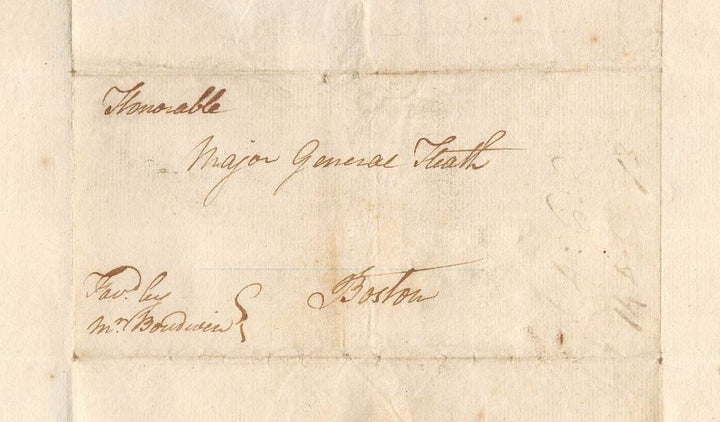 Honorable
Major General Heath
Favd. by
Mr. Boudwin
Boston